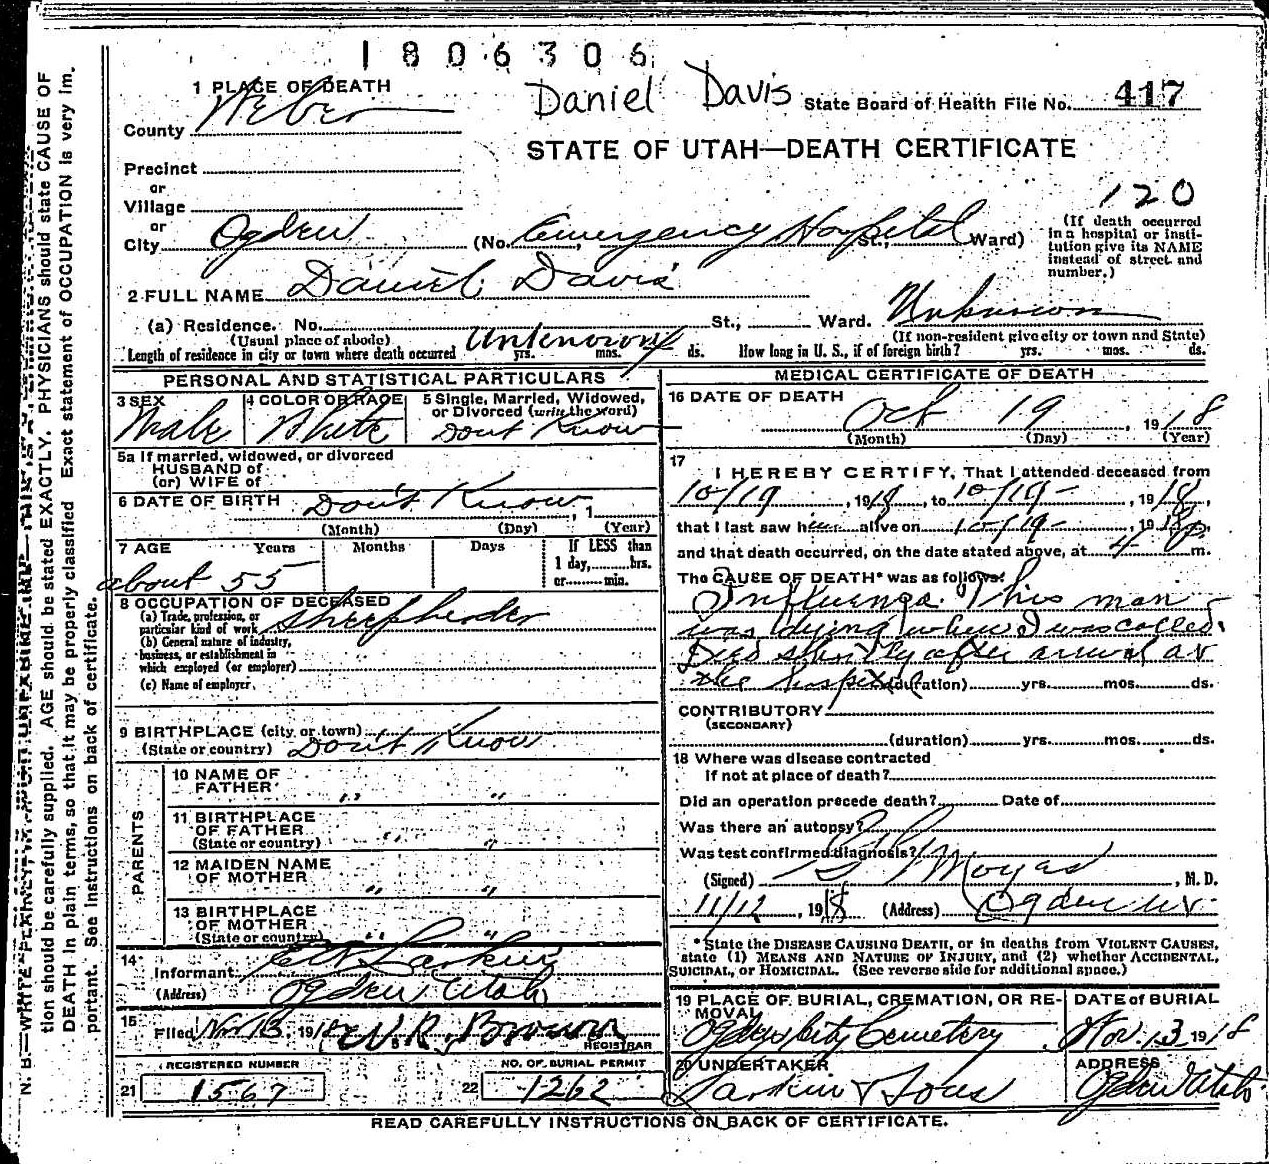 1806306
Daniel Davis
State Board of Health File No. 417
STATE OF UTAH—DEATH CERTIFICATE
120
1 PLACE OF DEATH
County Weber
Precinct
or
Village
or
City Ogden (No. Emergency Hospital St., Ward)
(If death occurred in a hospital or institution give its NAME instead of street and number.)
2 FULL NAME Daniel Davis
(a) Residence. No. St., Ward. Unknown
(Usual place of abode) (If non-resident give city or town and State)
Length of residence in city or town where death occurred Unknown yrs. mos. ds. How long in U. S., if of foreign birth? yrs. mos. ds.
PERSONAL AND STATISTICAL PARTICULARS
3 SEX Male
4 COLOR OR RACE White
5 Single, Married, Widowed, or Divorced (write the word) Dont Know
5a If married, widowed, or divorced
HUSBAND of
(or) WIFE of
6 DATE OF BIRTH Don't Know, 1
(Month) (Day) (Year)
7 AGE Years Months Days If LESS than 1 day, hrs. or min.
about 55
8 OCCUPATION OF DECEASED
(a) Trade, profession, or particular kind of work sheepherder
(b) General nature of industry, business, or establishment in which employed (or employer)
(c) Name of employer.
9 BIRTHPLACE (city or town)
(State or country) Don't Know
PARENTS
10 NAME OF FATHER " "
11 BIRTHPLACE OF FATHER (State or country) " "
12 MAIDEN NAME OF MOTHER " "
13 BIRTHPLACE OF MOTHER (State or country) " "
14 Informant Larkin
(Address) Ogden Utah
15 Filed Nov 13, 1918 W. R. Brown
REGISTRAR
REGISTERED NUMBER
21 1567
NO. OF BURIAL PERMIT
22 1262
MEDICAL CERTIFICATE OF DEATH
16 DATE OF DEATH Oct 19, 1918
(Month) (Day) (Year)
17 I HEREBY CERTIFY, That I attended deceased from
10/19, 1918, to 10/19, 1918,
that I last saw him alive on 10/19, 1918,
and that death occurred, on the date stated above, at 4 P m.
The CAUSE OF DEATH* was as follows:
Influenza. This man
was dying when I was called.
Died shortly after arrival at
the hospital (duration) yrs. mos. ds.
CONTRIBUTORY
(SECONDARY)
(duration) yrs. mos. ds.
18 Where was disease contracted
if not at place of death?
Did an operation precede death? Date of
Was there an autopsy?
Was test confirmed diagnosis?
(Signed) Moyes, M. D.
11/12, 1918 (Address) Ogden Ut.
*State the DISEASE CAUSING DEATH, or in deaths from VIOLENT CAUSES, state (1) MEANS AND NATURE OF INJURY, and (2) whether ACCIDENTAL, SUICIDAL, or HOMICIDAL. (See reverse side for additional space.)
19 PLACE OF BURIAL, CREMATION, OR REMOVAL Ogden City Cemetery
DATE of BURIAL Nov. 13 1918
20 UNDERTAKER Larkin & Sons
ADDRESS Ogden Utah
READ CAREFULLY INSTRUCTIONS ON BACK OF CERTIFICATE.
tion should be carefully supplied. AGE should be stated EXACTLY. PHYSICIANS should state CAUSE OF
DEATH in plain terms, so that it may be properly classified. Exact statement of OCCUPATION is very im-
portant. See instructions on back of certificate.